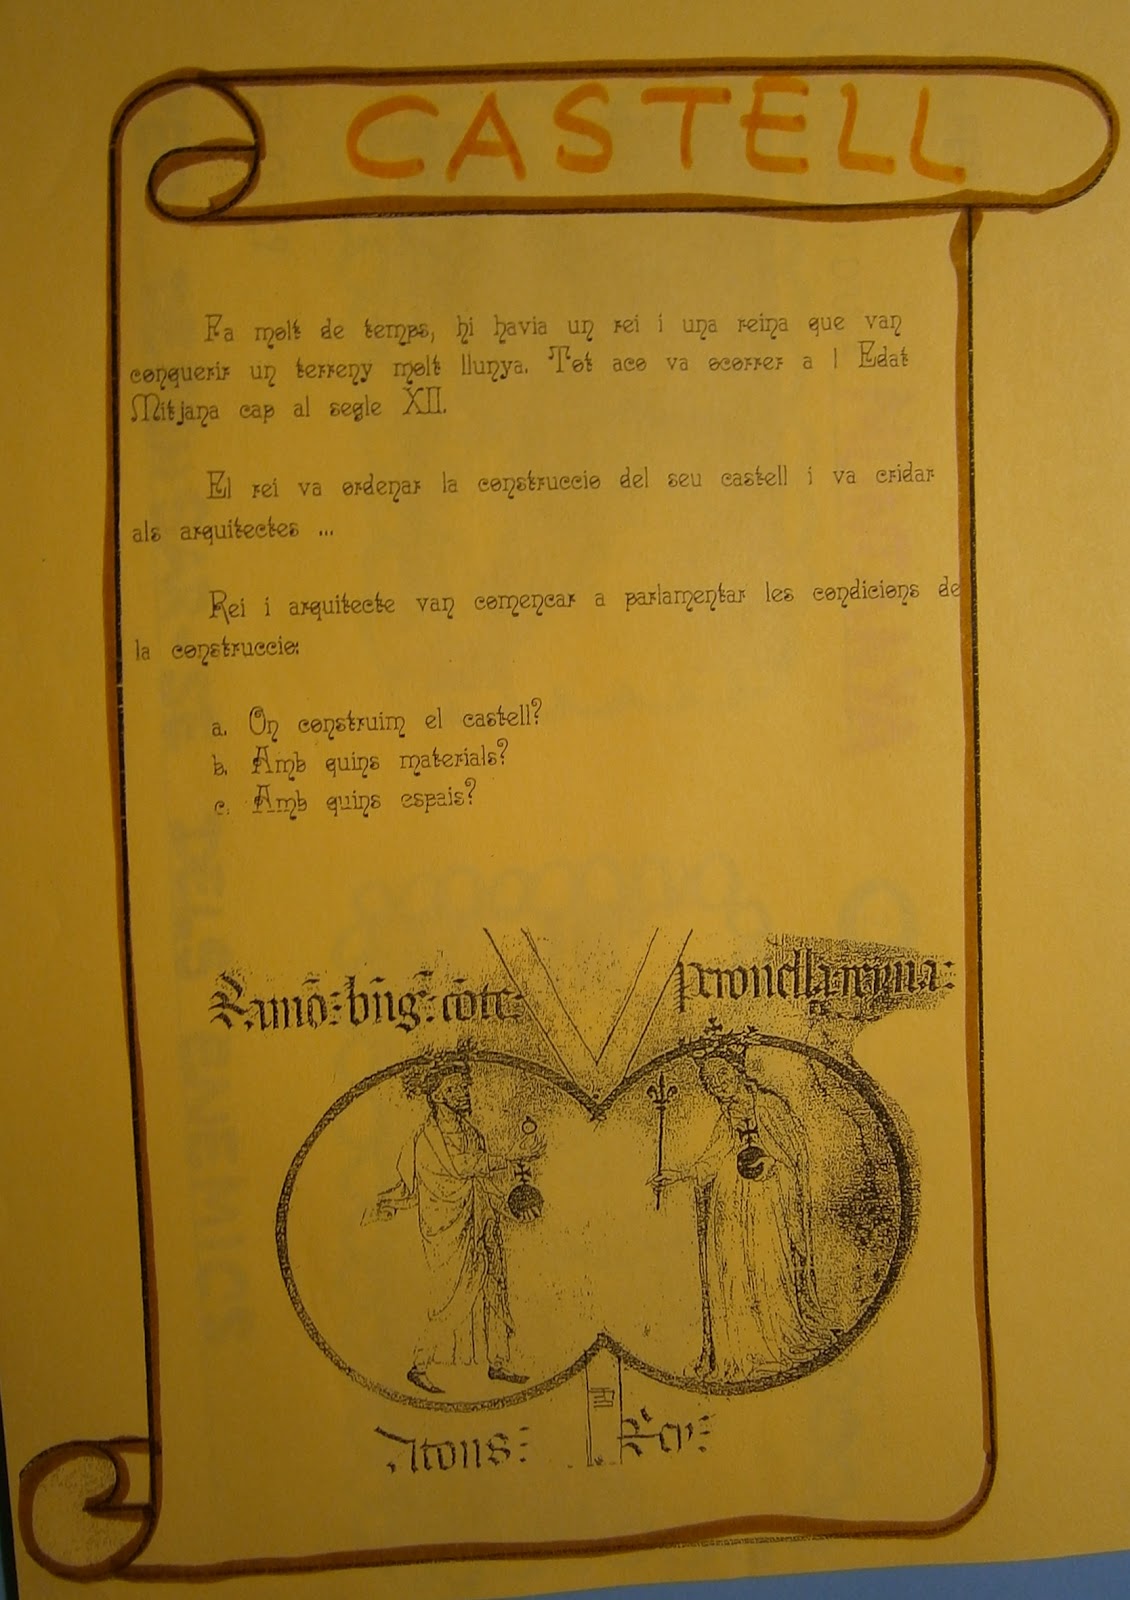 CASTELL
Fa molt de temps, hi havia un rei i una reina que van
conquerir un terreny molt llunya. Tot aco va ocorrer a l Edat
Mitjana cap al segle XII.
El rei va ordenar la construccio del seu castell i va cridar
als arquitectes ...
Rei i arquitecte van comencar a parlamentar les condicions de
la construccio:
a. On construim el castell?
b. Amb quins materials?
c. Amb quins espais?